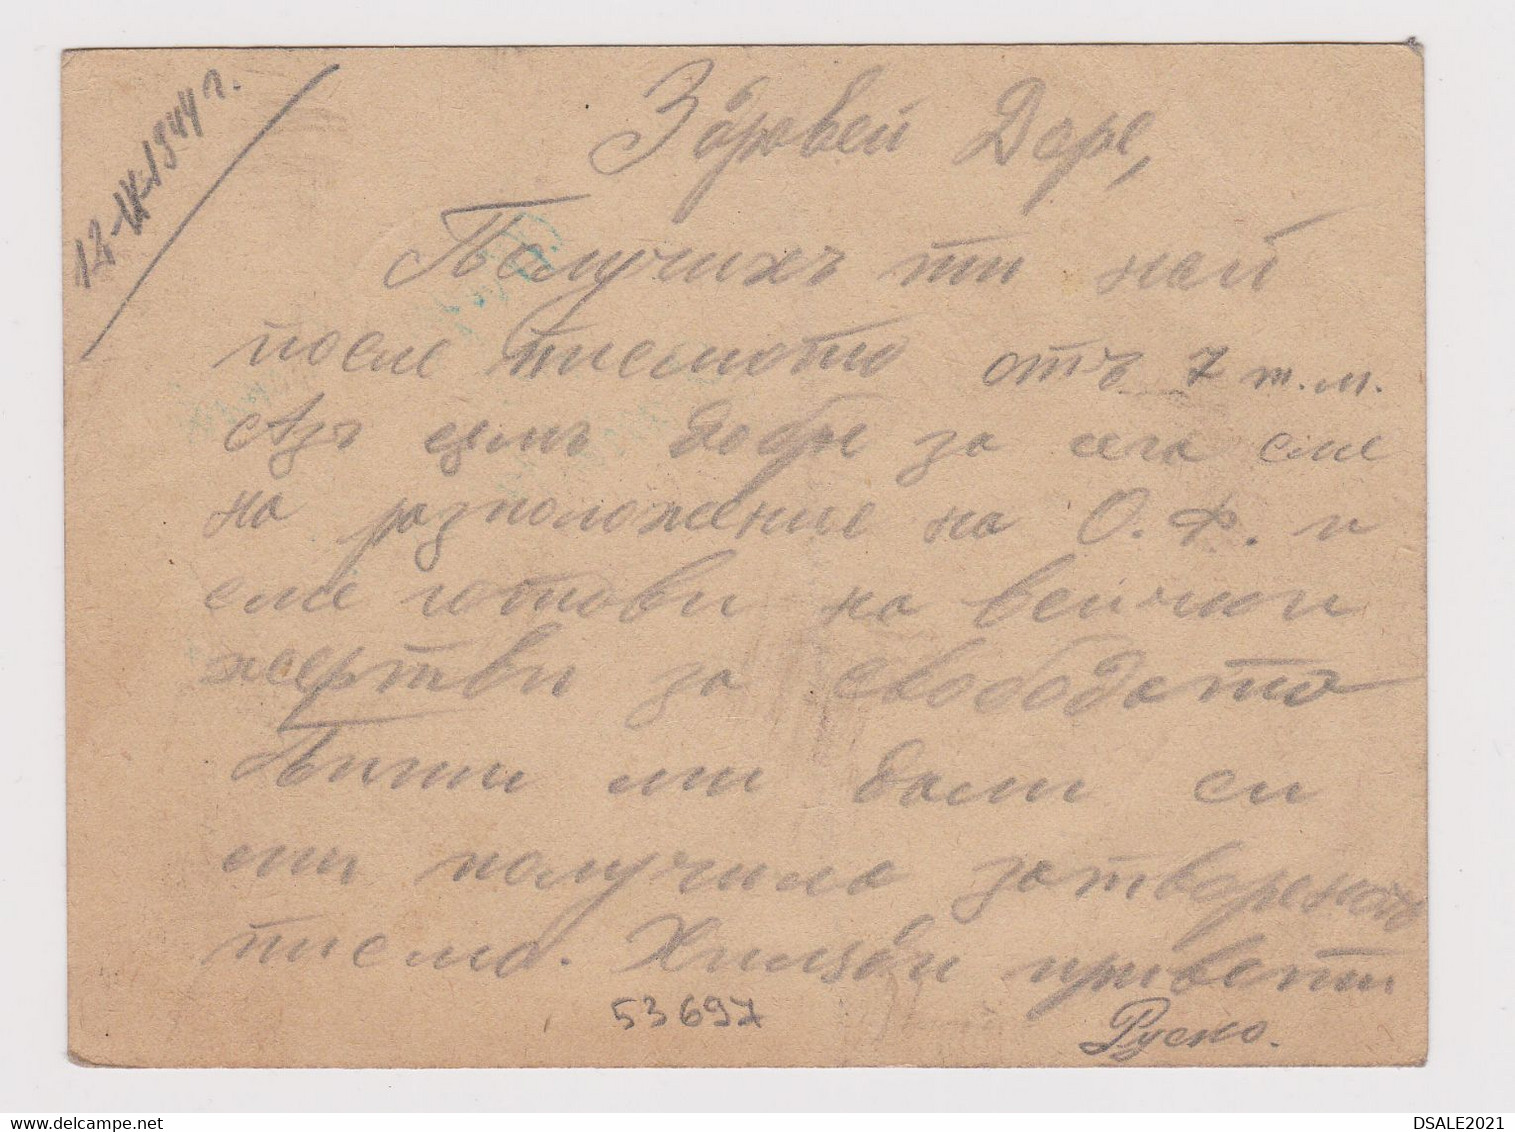 12-IX-1944 г.
Здравей Доре,
Получихъ ти най
после писмото отъ 7 т.м.
Азъ съмъ добре за сега сме
на разположение на О.Ф. и
сме готови на всички
жертви за свободата
Пиши ми дали си
ми получила затворената
писмо. Хиляди привети
Руско.
53697
DSALE2021
delcampe.net